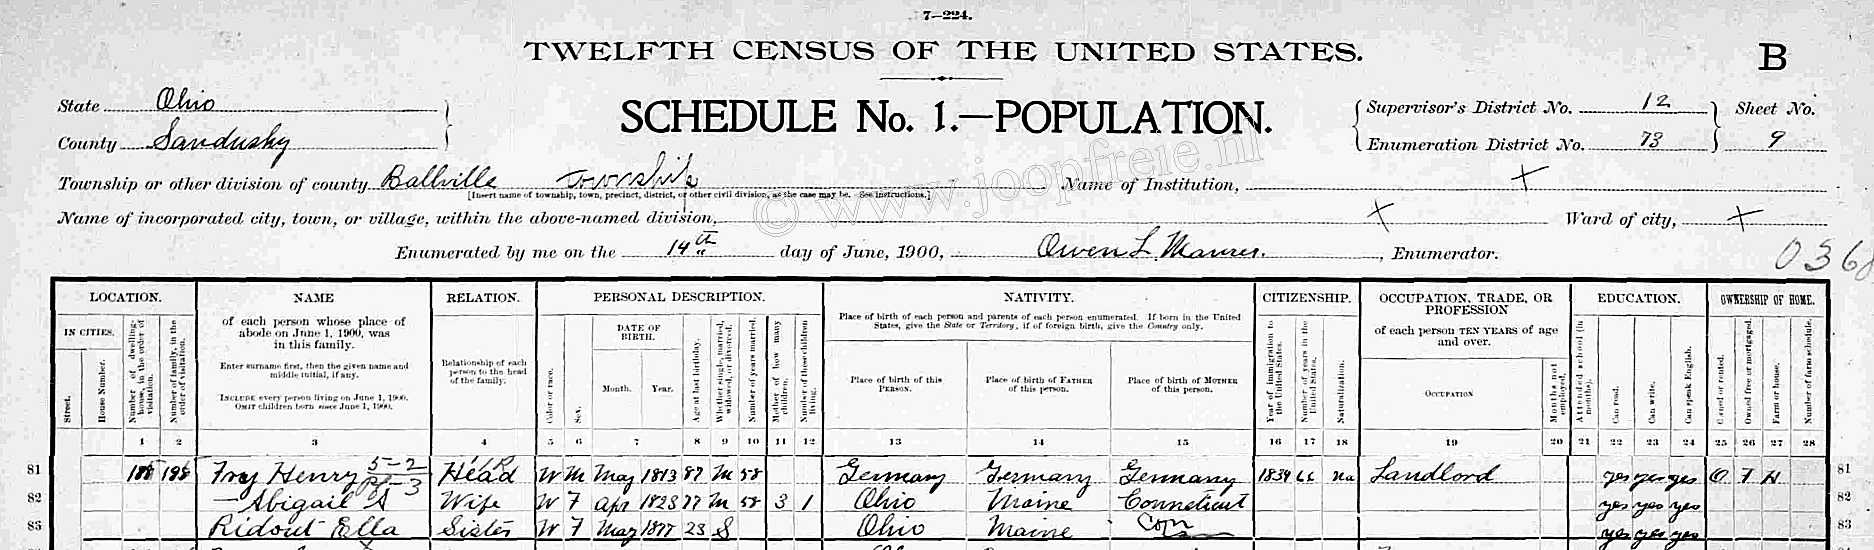 7—224.
TWELFTH CENSUS OF THE UNITED STATES.
B
State Ohio
SCHEDULE No. 1.—POPULATION.
Supervisor's District No. 12 Sheet No.
County Sandusky
Enumeration District No. 73 9
Township or other division of county Ballville Township Name of Institution, X
[Insert name of township, town, precinct, district, or other civil division, as the case may be. See instructions.]
© www.joopfreie.nl
Name of incorporated city, town, or village, within the above-named division, X Ward of city, X
Enumerated by me on the 14th day of June, 1900, Owen L. Maurer. , Enumerator.
036
LOCATION. NAME RELATION. PERSONAL DESCRIPTION. NATIVITY. CITIZENSHIP. OCCUPATION, TRADE, OR PROFESSION EDUCATION. OWNERSHIP OF HOME.
IN CITIES.
Street.
House Number.
Number of dwelling-house, in the order of visitation.
Number of family, in the order of visitation.
of each person whose place of abode on June 1, 1900, was in this family.
Enter surname first, then the given name and middle initial, if any.
INCLUDE every person living on June 1, 1900.
OMIT children born since June 1, 1900.
Relationship of each person to the head of the family.
Color or race.
Sex.
DATE OF BIRTH.
Month. Year.
Age at last birthday.
Whether single, married, widowed, or divorced.
Number of years married.
Mother of how many children.
Number of these children living.
Place of birth of each person and parents of each person enumerated. If born in the United States, give the State or Territory; if of foreign birth, give the Country only.
Place of birth of this PERSON.
Place of birth of FATHER of this person.
Place of birth of MOTHER of this person.
Year of immigration to the United States.
Number of years in the United States.
Naturalization.
of each person TEN YEARS of age and over.
OCCUPATION
Months not employed.
Attended school (in months).
Can read.
Can write.
Can speak English.
Owned or rented.
Owned free or mortgaged.
Farm or house.
Number of farm schedule.
1 2 3 4 5 6 7 8 9 10 11 12 13 14 15 16 17 18 19 20 21 22 23 24 25 26 27 28
81 188 198 Frey Henry 5-2 Head W M May 1813 87 M 58 Germany Germany Germany 1839 Na Landlord yes yes yes O F H 81
82 — Abigail S Wife W F Apr 1823 77 M 58 3 1 Ohio Maine Connecticut yes yes yes 82
83 Ridout Ella Sister W F May 1877 23 S Ohio Maine Conn yes yes yes 83